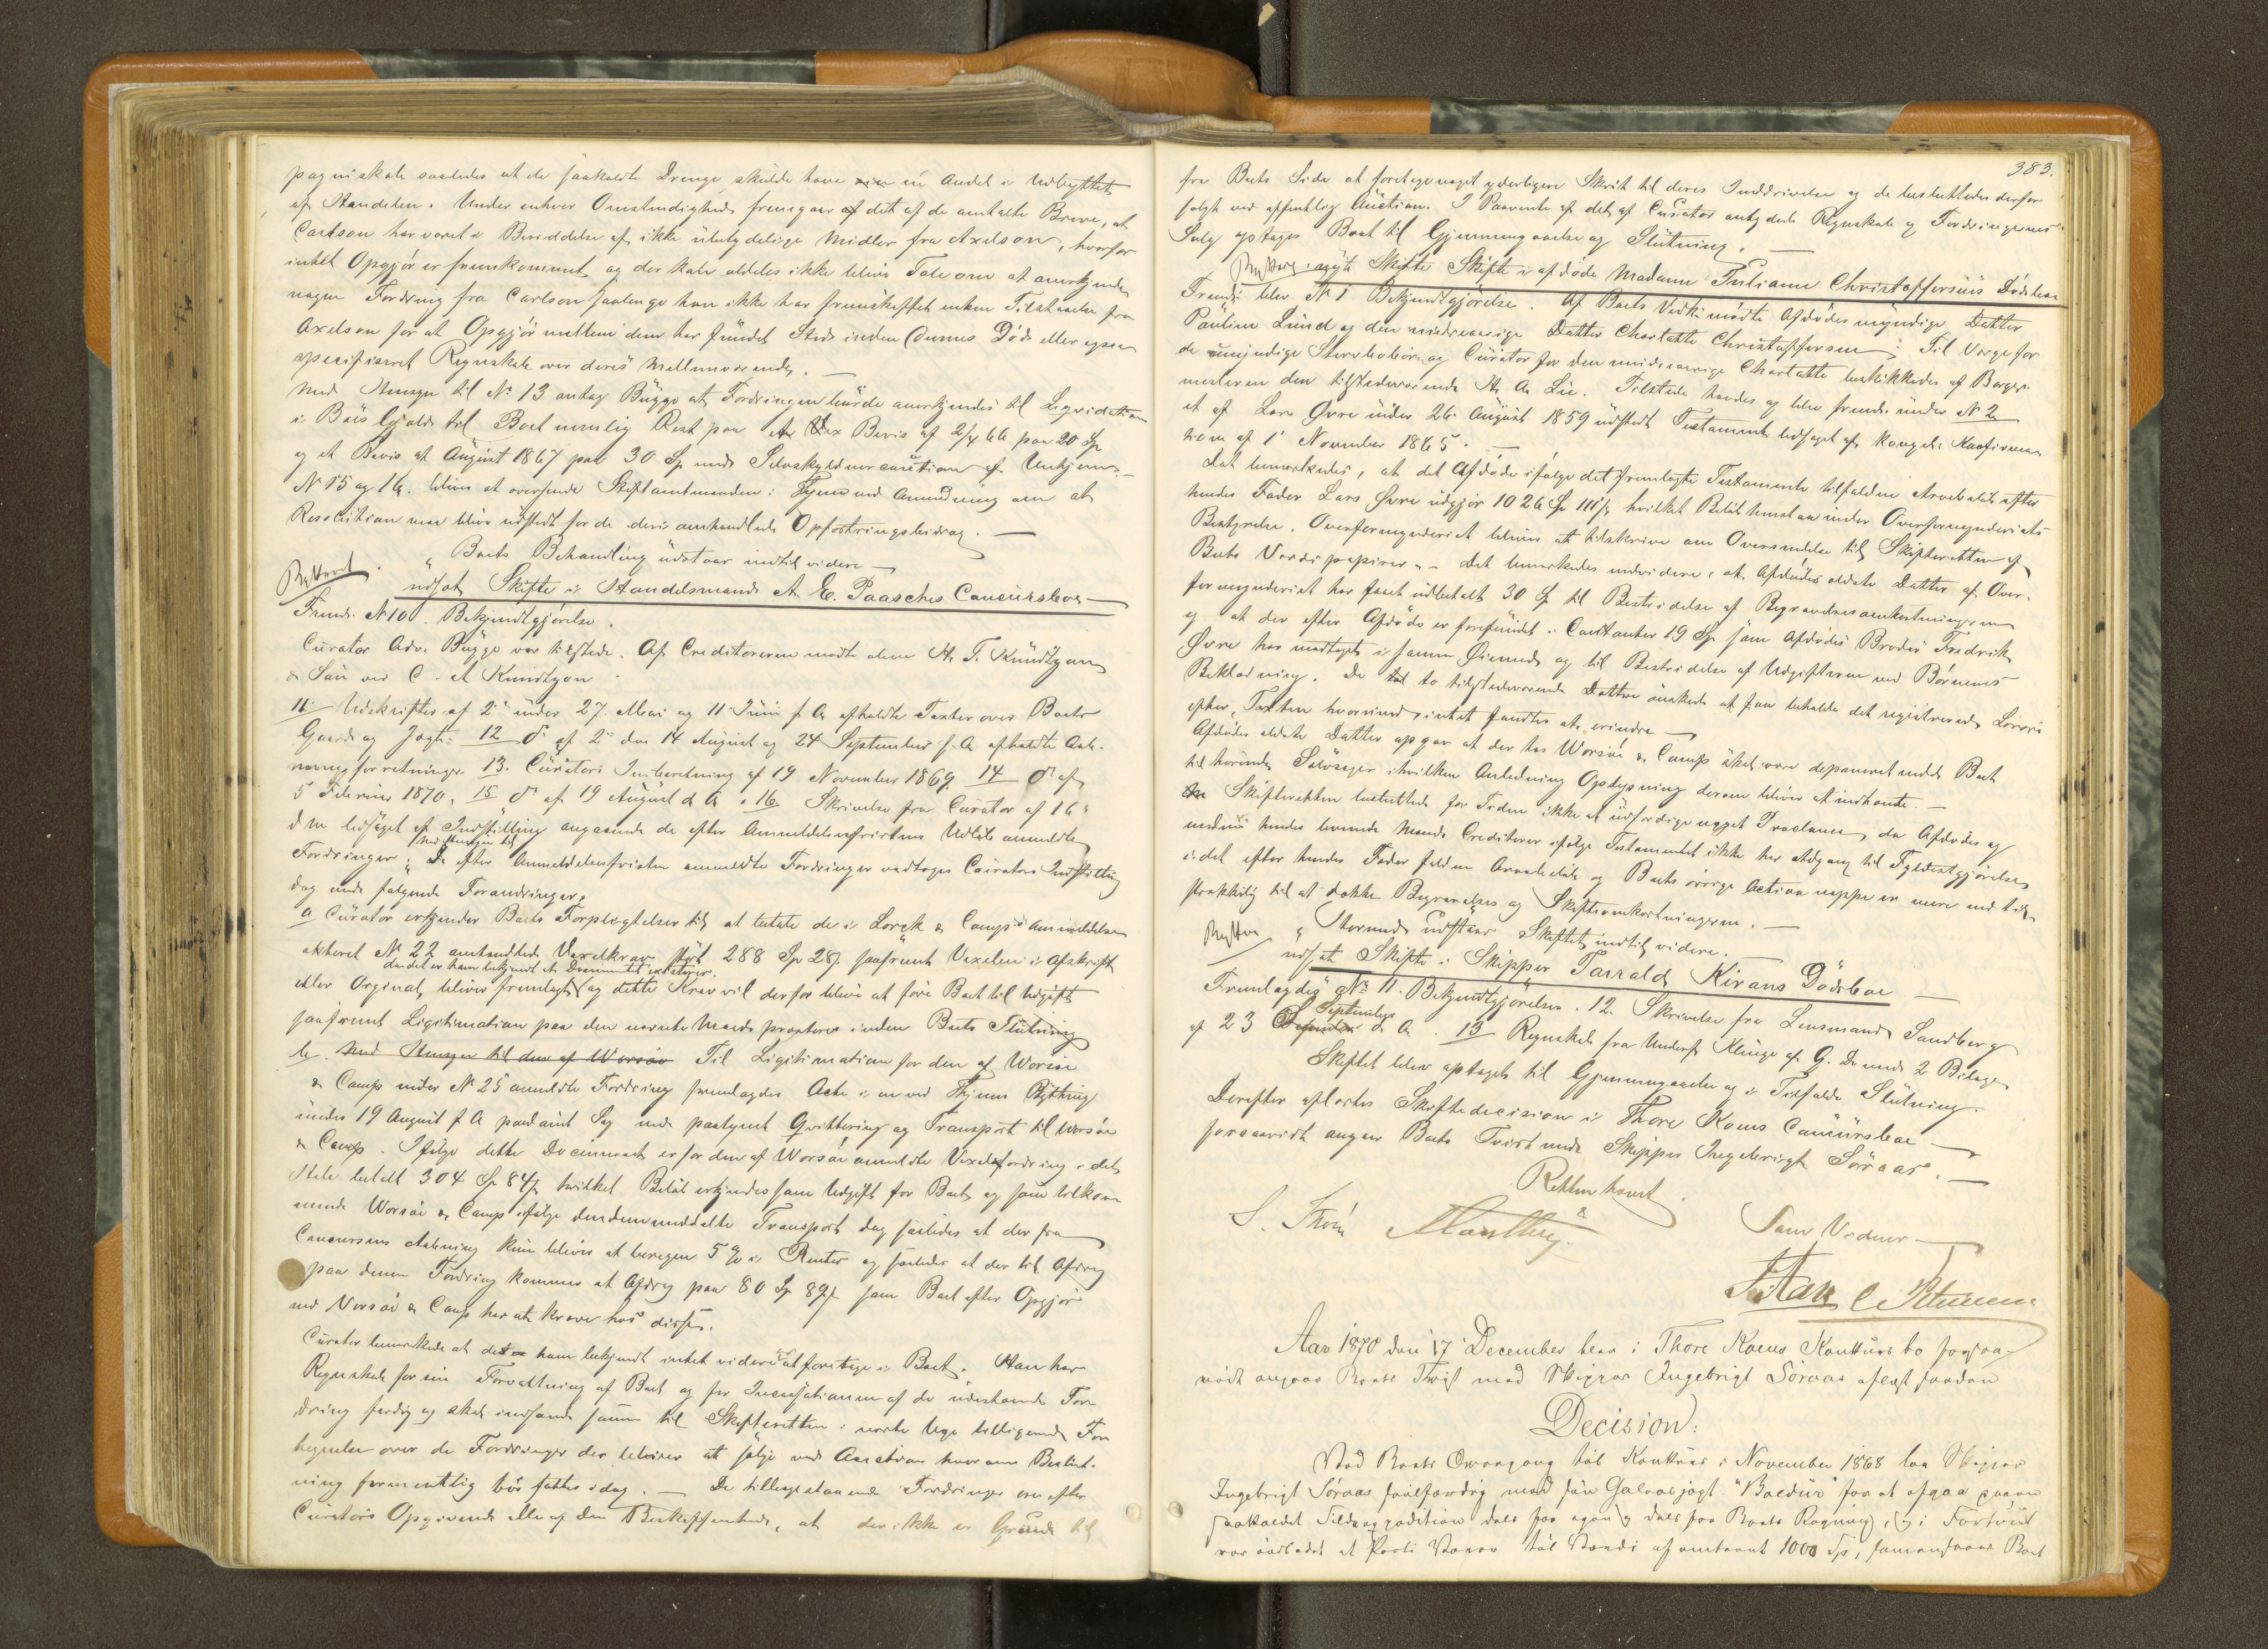 pagniskab saaledes at de saakaldte Drenge skulde have en Andel i Udbyttet
af Handelen. Under enhver Omstendighed fremgaar det af de omtalte Breve, at
Carlson har været i Besiddelse af ikke ubetydelige Midler fra Axelson, hvorfor
intet Opgjör er fremkommet og der kan aldeles ikke blive Tale om at anerkjende
nogen Fordring fra Carlson saalenge han ikke har fremskaffet enten Tilstaaelse fra
Axelson for at Opgjör mellem dem har fundet Sted inden Dennes Död eller et
specificeret Regnskab over deres Mellemværende.
Med Hensyn til No 13 antog Bügge at Fordringen burde anerkjendes til Liqvidation
i Böis Gjæld til Boet nemlig Rest paa Bevis af 2/4 66 paa 20 Sp
og et Bevis af August 1867 paa 30 Sp med Selvskyldnercaution af
No 15 og 16. bliver at oversende Skiftamtmanden med Anmodning om at
Resolution maa blive udstedt for de deri omhandlede Opfostringsbidrag.
Boets Behandling udstaar indtil videre
udsat Skifte i Handelsmand A. E. Paasches Concursboe
Freml. No 10. Bekjendtgjörelse.
Curator Adv. Bügge var tilstede. Af Creditorerne mödte alene H. T. Kündtzon
& Sön ved C. A. Kündtzon
11. Udskrifter af 2de under 27. Mai og 11 Juni f. A. afholdte Taxter over Boets
Gaard og Jagt. 12 do af 2de den 14 August og 24 September f. A. afholdte
forretninger 13. Curators Indberetning af 19 November 1869. 14 do af
5 Februar 1870, 15 do af 19 August d. A., 16 Skrivelse fra Curator af 16
d. M. ledsaget af Indstilling angaaende de efter Anmeldelsesfristens Udløb anmeldte
Med Hensyn til
Fordringer. De efter Anmeldelsesfristen anmeldte Fordringer vedtoges Curators Indstilling
dog med fölgende Forandringer.
a Curator erkjender Boets Forpligtelse til at betale de i Lorck & Camps Anmeldelse
aktoret No 22 omhandlede Vexelkrav stort 288 Sp 28 s. saafremt Vexelen i Afskrift
eller Orginal bliver fremlagt og dette Krav vil derfor blive at före Boet til Udgift
saafremt Legitimation paa den nævnte Mands præsteres inden Boets Slutning
b. Med Hensyn til den af Worsöe Til Legitimation for den af Worsöe
& Camp under No 25 anmeldte Fordring fremlagdes Acte i en ved Bything
under 19 August f. A. paadömt Sag med paategnet Qvittering og Transport til Worsöe
& Camp. Ifölge dette Document er for den af Worsöe anmeldte Vexelfordring i det
Hele betalt 304 Sp 84 s. hvilket Belöb erkjendes som Udgift for Boet og som tilkom-
mende Worsöe & Camp ifölge den dem meddelte Transport dog saaledes at der fra
Concursens Aabning kun bliver at beregne 5 % i Renter og saaledes at der til Afdrag
paa denne Fordring kommer et Afdrag paa 80 Sp 89 s. som Boet efter Opgjör
med Worsöe & Camp har at kræve hos disse.
Curator bemærkede at det er ham bekjendt intet videre at foretage i Boet. Han har
Regnskab for sin Forvaltning af Boet og for Incassationen af de udestaaende For-
dring færdig og skal indsende samme til Skifteretten i næste Uge tilligemed For-
tegnelse over de Fordringer der bliver at sælge ved Auction hvorom Beslut-
ning formentlig bör fattes idag. De tilbagestaaende Fordringer ere efter
Curators Opgivende alle af den Beskaffenhed, at der ikke er Grund til
383.
fra Boets Side at foretage noget yderligere Skrit til deres Inddrivelse og de besluttedes derfor
solgt ved offentlig Auction. I Paavente af det af Curator antydede Regnskab og Fordringernes
Salg optages Boet til Gjennemgaaelse og Slutning.
Skifte i afdöde Madame Juliane Christophersens Dödsboe
Fremdl. blev No 1 Bekjendtgjörelse. Af Boets Vedk. mödte Afdödes myndige Datter
Pauline Lund og den mindreaarige Datter Charlotte Christoffersen. Til Værge for
de umyndige Sterboböern og Curator for den mindreaarige Charlotte beskikkedes af Borger-
mesteren den tilstedeværende H. A. Lie. Tilstede havdes og blev fremdl. under No 2
et af Lars Øvre under 26 August 1859 udstedt Testament ledsaget af kongelig Konfirma-
tion af 1 November 1865.
Det bemærkedes, at det Afdöde ifölge det fremlagte Testamente tilfaldne Arvebelöb efter
hendes Fader Lars Øvre udgjör 1026 Sp 111 s. hvilket Belöb henstaar under Overformynderiets
Bestyrelse. Overformynderiet bliver at tilskrive om Oversendelse til Skifteretten af
Boets Værdipapirer. Det bemærkedes endvidere, at Afdödes ældste Datter af Over-
formynderiet har faaet udbetalt 30 Sp til Bestridelse af Begravelsesomkostningerne
og at der efter Afdöde er forefundet i Contanter 19 Sp som Afdödes Broder Fredrik
Øvre har modtaget i samme Øiemed og til Bestridelse af Udgifterne ved Börnenes
Beklædning. De to tilstedeværende Döttre önskede at faa beholde det registrerede Lösöre
efter Taxten hvorimod intet fandtes at erindre
Afdödes ældste Datter opgav at der hos Worsöe & Camp skal være deponeret endel Boet
tilhörende Sölvsager i hvilken Anledning Oplysning derom bliver at indhente.
Skifteretten besluttede for Tiden ikke at udfærdige noget Proclama, da Afdödes og
hendes levende Mands Creditorer ifölge Testamentet ikke har Adgang til Fyldestgjörelse
i det efter hendes Fader faldne Arvebelöb og Boets övrige Activa neppe er mere end til-
strækkelig til at dække Begravelses og Skifteomkostningerne.
Hermed udstaar Skiftet indtil videre.
udsat Skifte i Skipper Tarrald Kirans Dödsboe
Fremlagdes No 11. Bekjendtgjörelse. 12. Skrivelse fra Lensmand Sandberg
September
af 23 d. A. 13 Regnskab fra Underf. Klinge af 9. De med 2 Bilage
Skiftet blev optaget til Gjennemgaaelse og i Tilfælde Slutning.
Derefter aflæstes Skiftedecision i Thore Koens Concursboe
forsaavidt angaar Boets Tvist med Skipper Ingebrigt Söraas.
Retten hævet.
Som Vidner
Aar 1870 den 17 December blev i Thore Koens Konkursbo forsaa-
vidt angaar Boets Tvist med Skipper Ingebrigt Söraas aflagt saadan
Decision:
Ved Boets Overgang til Konkurs i November 1868 laa Skipper
Ingebrigt Söraas seilfærdig med sin Galeasjagt "Baldur" for at afgaa paa en
saakaldet Sildeexpedition dels for egen og dels for Boets Regning, og i Fartöiet
var indladet et Parti Varer til Værdi af omtrent 1000 Sp, Boet